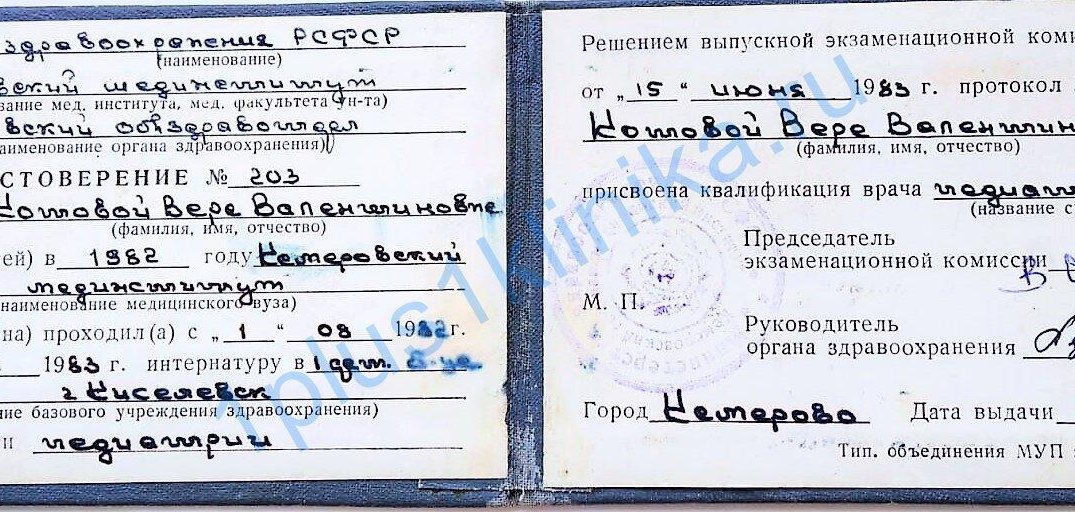 здравоохранения РСФСР
(наименование)
вский мединститут
вание мед. института, мед. факультета ун-та)
вский облздравотдел
аименование органа здравоохранения)
СТОВЕРЕНИЕ № 203
Котовой Вере Валентиновне
(фамилия, имя, отчество)
ей) в 1982 году Кемеровский
мединститут
наименование медицинского вуза)
на) проходил(а) с „ 1 “ 08 1982 г.
1983 г. интернатуру в 1 дет. б-це
г. Киселевск
ние базового учреждения здравоохранения)
и педиатрии
Решением выпускной экзаменационной коми
от „ 15 “ июня 1983 г. протокол
Котовой Вере Валентин
(фамилия, имя, отчество)
присвоена квалификация врача педиат
(название с
Председатель
экзаменационной комиссии
М. П.
Руководитель
органа здравоохранения
Город Кемерово Дата выдачи
Тип. объединения МУП
1plus1klinika.ru